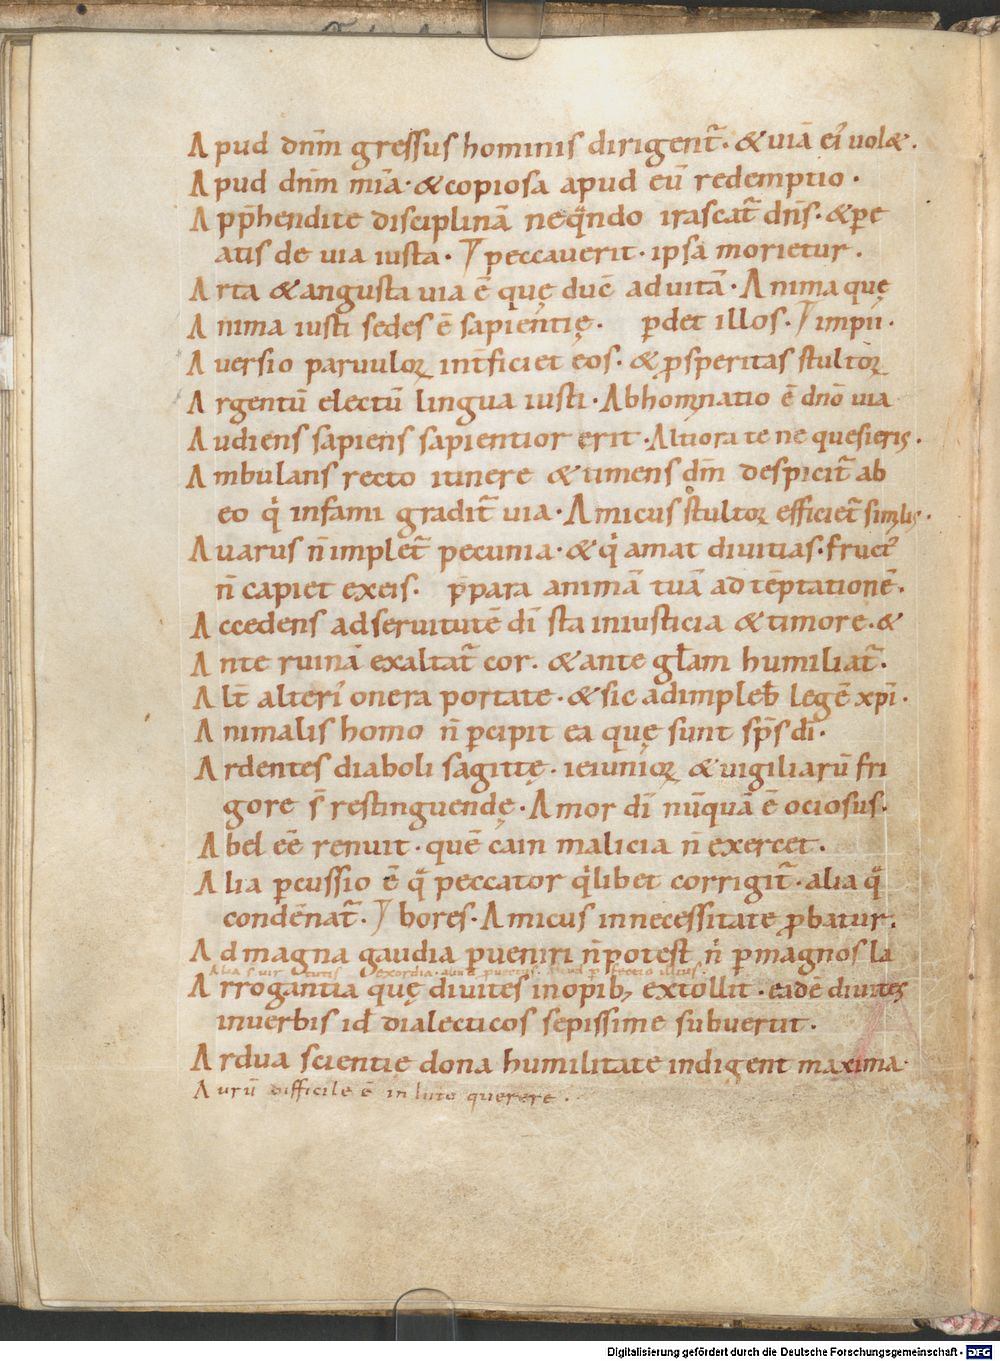 Apud dn̄m gressus hominis dirigent᷑. & uiā ei᷒ uolæ.
Apud dn̄m mīa. & copiosa apud eū redemptio.
Appͬhendite disciplinā neqͣndo irascat᷑ dn̄s. & ꝑe
atis de uia iusta. peccauerit. ipsa morietur.
Arta & angusta uia ē quę duc̄ ad uitā. Anima quę
Anima iusti sedes ē sapientię. ꝑdet illos. impii.
Auersio paruuloꝝ int̄ficiet eos. & ꝓsperitas stultoꝝ
Argentū electū lingua iusti. Abhominatio ē dn̄o uia
Audiens sapiens sapientior erit. Altiora te ne quesieris.
Ambulans recto itinere & timens dm̄ despicit᷑ ab
eo qͥ infami gradit᷑ uia. Amicus stultoꝝ efficiet᷑ similis.
Auarus n̄ implet᷑ pecunia. & qͥ amat diuitias. fruct᷒
n̄ capiet ex eis. p̄para animā tuā ad tēptationē.
Accedens ad seruitutē dī sta in iusticia & timore. &
Ante ruinā exaltat᷑ cor. & ante gl̄am humiliat᷑.
Alt̄ alteri᷒ onera portate. & sic adimplebꝉ legē xp̄i.
Animalis homo n̄ ꝑcipit ea quę sunt sp̄s dī.
Ardentes diaboli sagittę. ieiunioꝝ & uigiliarū fri
gore s̄ restinguendę. Amor dī nūquā ē ociosus.
Abel eē renuit. quē cain malicia n̄ exercet.
Alia ꝑcussio ē qͣ peccator qͥlibet corrigit᷑. alia qͣ
condēnat᷑. bores. Amicus in necessitate ꝓbatur.
Ad magna gaudia ꝑueniri n̄ potest n̓ ꝑ magnos la
Alia s̄ uirtutis exordia. aliud
Arrogantia quę diuites in opib; extollit. eadē diuites
in uerbis id dialecticos sepissime subuertit.
Ardua scientie dona humilitate indigent maxima.
Aurū difficile ē in luto querere.
Digitalisierung gefördert durch die Deutsche Forschungsgemeinschaft - DFG